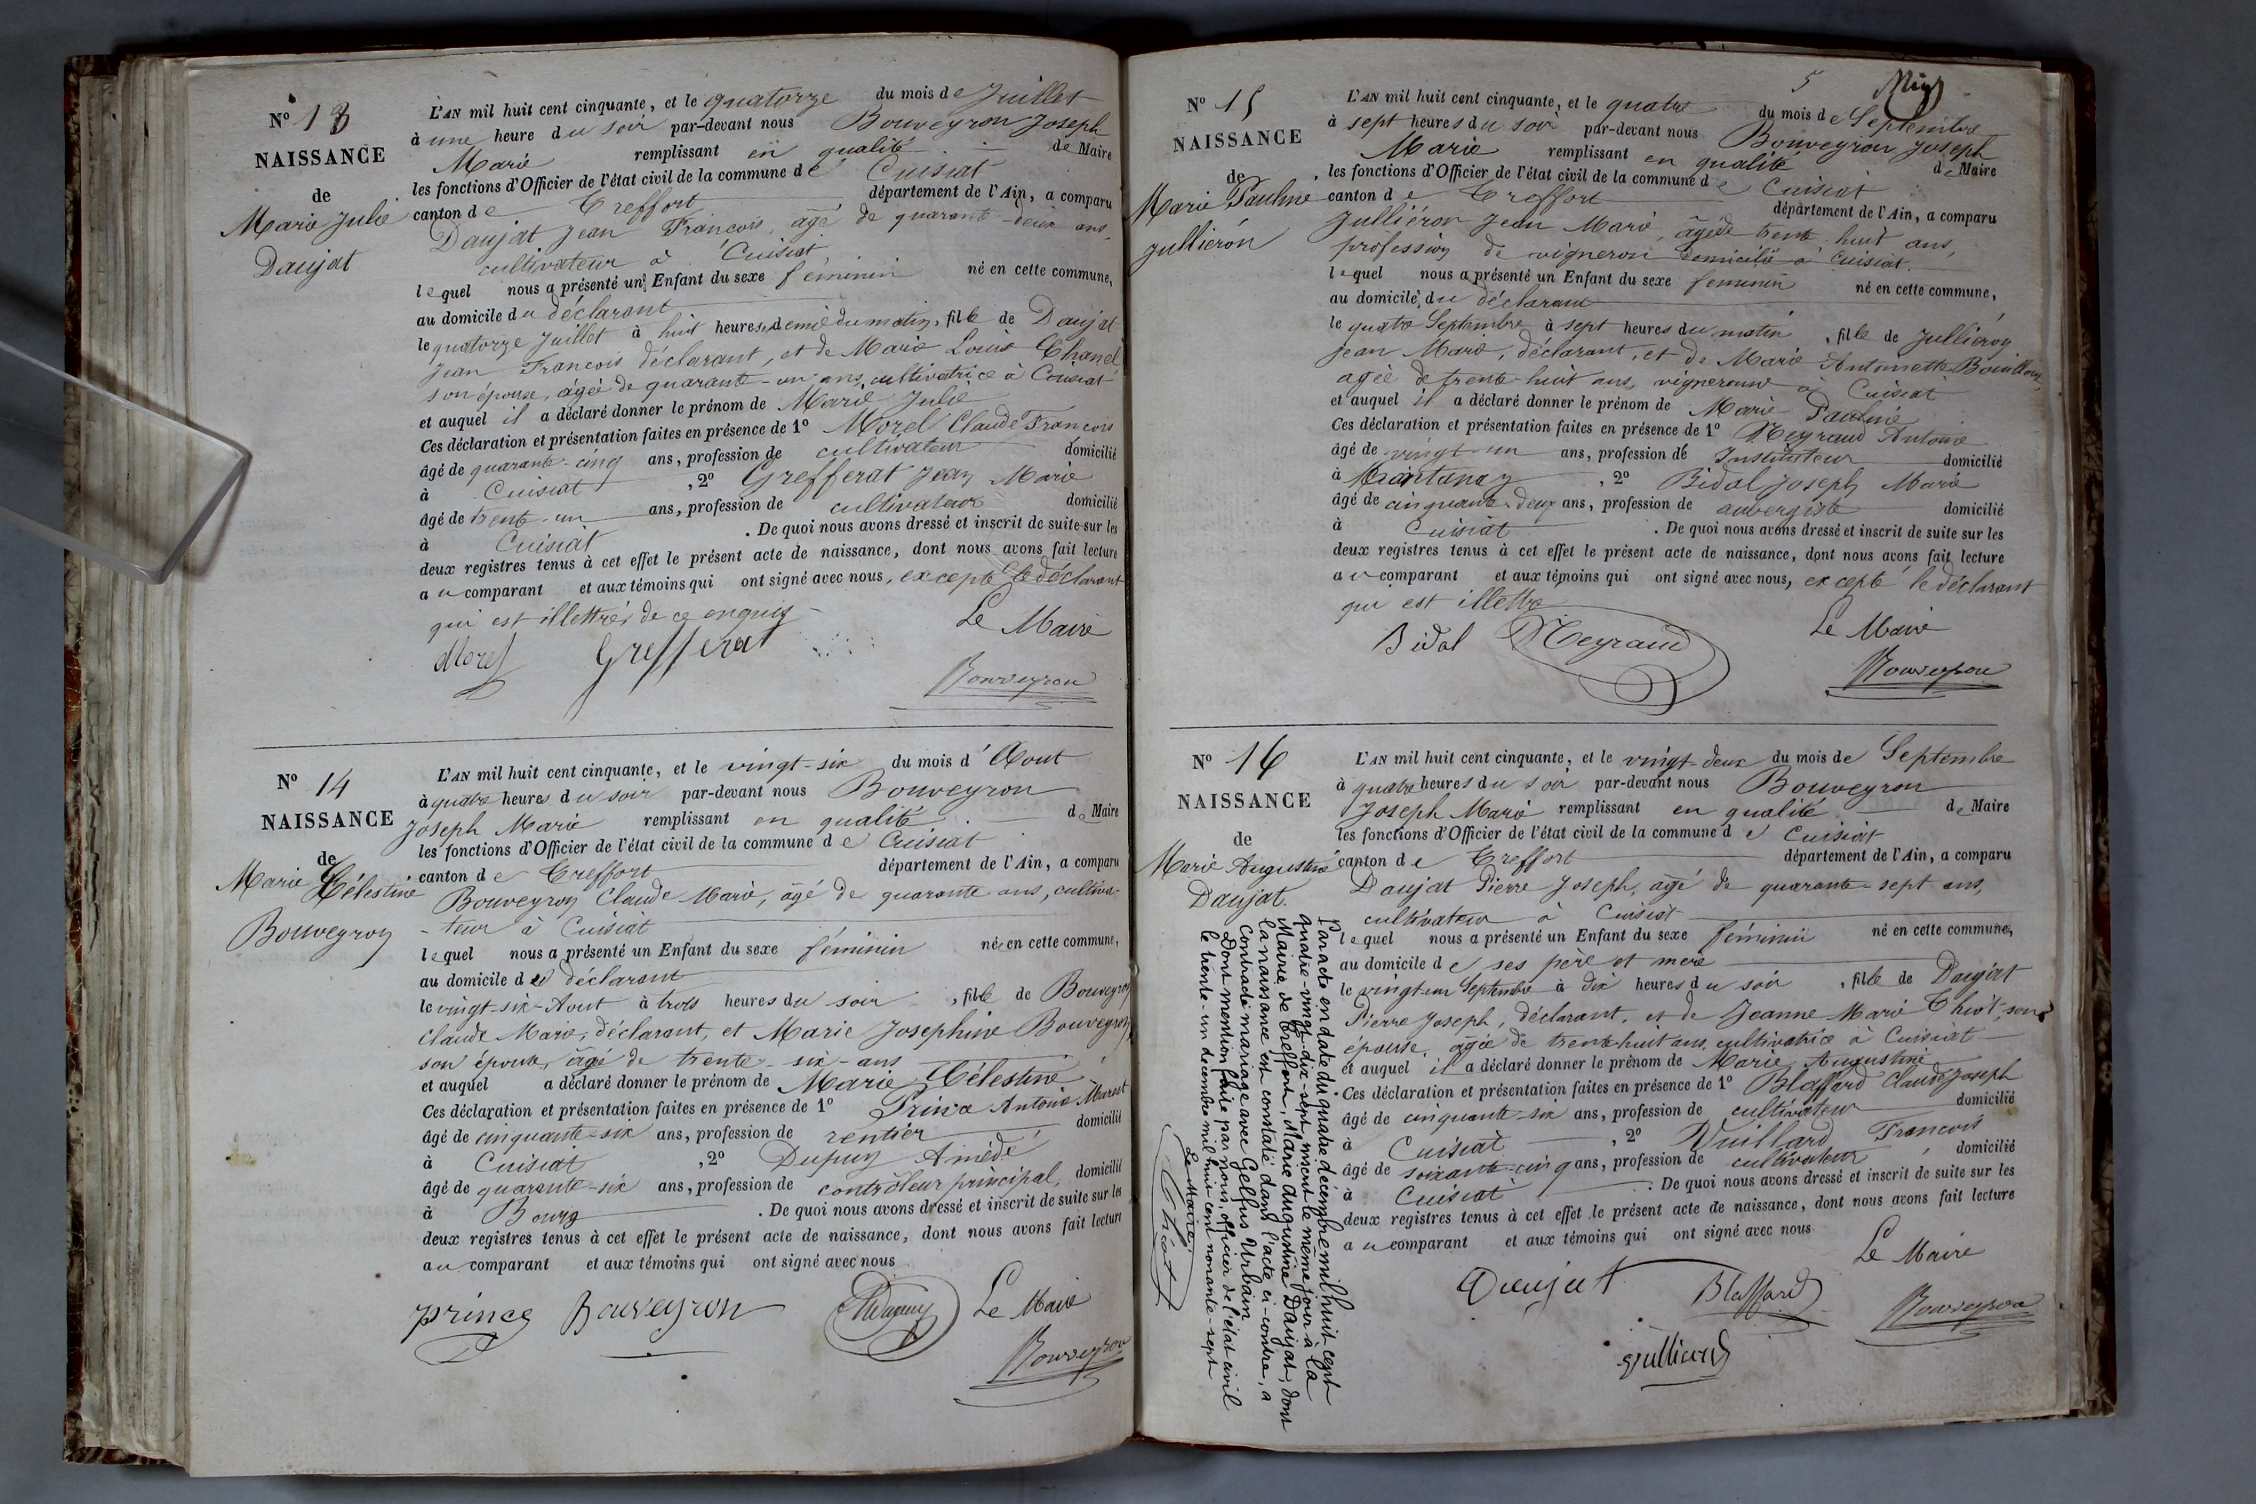 Nº 13
NAISSANCE
de
Marie Julie
Daujat
L'AN mil huit cent cinquante, et le quatorze du mois de Juillet
à une heure du soir par-devant nous Bouveyron Joseph
Marie remplissant en qualité de Maire
les fonctions d'Officier de l'état civil de la commune de Cuisiat
canton de Treffort département de l'Ain, a comparu
Daujat Jean François, âgé de quarante-deux ans,
cultivateur à Cuisiat
lequel nous a présenté un Enfant du sexe féminin né en cette commune,
au domicile du déclarant
le quatorze Juillet à huit heures demie du matin, fille de Daujat
Jean François déclarant, et de Marie Louise Chanel
son épouse, âgée de quarante-un ans, cultivatrice à Cuisiat
et auquel il a déclaré donner le prénom de Marie Julie
Ces déclaration et présentation faites en présence de 1º Morel Claude François
âgé de quarante-cinq ans, profession de cultivateur domicilié
à Cuisiat, 2º Grefferat Jean Marie
âgé de trente-un ans, profession de cultivateur domicilié
à Cuisiat. De quoi nous avons dressé et inscrit de suite sur les
deux registres tenus à cet effet le présent acte de naissance, dont nous avons fait lecture
au comparant et aux témoins qui ont signé avec nous, excepté le déclarant
qui est illettré, de ce enquis
Le Maire
Morel Grefferat
Bouveyron
Nº 14
NAISSANCE
de
Marie Célestine
Bouveyron
L'AN mil huit cent cinquante, et le vingt-six du mois d'Aout
à quatre heures du soir par-devant nous Bouveyron
Joseph Marie remplissant en qualité de Maire
les fonctions d'Officier de l'état civil de la commune de Cuisiat
canton de Treffort département de l'Ain, a comparu
Bouveyron Claude Marie, âgé de quarante ans, cultiva-
-teur à Cuisiat
lequel nous a présenté un Enfant du sexe féminin née en cette commune,
au domicile du déclarant
le vingt-six Aout à trois heures du soir, fille de Bouveyron
Claude Marie, déclarant, et Marie Josephine Bouveyron
son épouse, âgé de trente-six-ans
et auquel a déclaré donner le prénom de Marie Célestine
Ces déclaration et présentation faites en présence de 1º Antoine
âgé de cinquante-six ans, profession de rentier domicilié
à Cuisiat, 2º Dupuy Amédé
âgé de quarante-six ans, profession de contrôleur principal, domicilié
à Bourg. De quoi nous avons dressé et inscrit de suite sur les
deux registres tenus à cet effet le présent acte de naissance, dont nous avons fait lecture
au comparant et aux témoins qui ont signé avec nous
prince Bouveyron Dupuy Le Maire
Bouveyron
5
Nº 15
NAISSANCE
de
Marie Pauline
Julliéron
L'AN mil huit cent cinquante, et le quatre du mois de Septembre
à sept heures du soir par-devant nous Bouveyron Joseph
Marie remplissant en qualité de Maire
les fonctions d'Officier de l'état civil de la commune de Cuisiat
canton de Treffort département de l'Ain, a comparu
Julliéron Jean Marie, âgé de trente-huit ans,
profession de vigneron domicilié à Cuisiat.
lequel nous a présenté un Enfant du sexe féminin né en cette commune,
au domicile du déclarant
le quatre Septembre à sept heures du matin, fille de Julliéron
Jean Marie, déclarant, et de Marie Antoinette
agée de trente-huit ans, vigneronne à Cuisiat
et auquel il a déclaré donner le prénom de Marie Pauline
Ces déclaration et présentation faites en présence de 1º Neyraud Antoine
âgé de vingt-un ans, profession de Instituteur domicilié
à, 2º Bidal Joseph Marie
âgé de cinquante-deux ans, profession de aubergiste domicilié
à Cuisiat. De quoi nous avons dressé et inscrit de suite sur les
deux registres tenus à cet effet le présent acte de naissance, dont nous avons fait lecture
au comparant et aux témoins qui ont signé avec nous, excepté le déclarant
qui est illettré
Le Maire
Bidal Neyraud
Bouveyron
Nº 16
NAISSANCE
de
Marie Augustine
Daujat.
L'AN mil huit cent cinquante, et le vingt-deux du mois de Septembre
à quatre heures du soir par-devant nous Bouveyron
Joseph Marie remplissant en qualité de Maire
les fonctions d'Officier de l'état civil de la commune de Cuisiat
canton de Treffort département de l'Ain, a comparu
Daujat Pierre Joseph, âgé de quarante-sept ans,
cultivateur à Cuisiat
lequel nous a présenté un Enfant du sexe féminin né en cette commune,
au domicile de ses père et mère
le vingt-un Septembre à dix heures du soir, fille de Daujat
Pierre Joseph, déclarant, et de Jeanne Marie son
épouse, âgée de trente-huit ans, cultivatrice à Cuisiat
et auquel il a déclaré donner le prénom de Marie Augustine
Ces déclaration et présentation faites en présence de 1º Blaffard Claude Joseph
âgé de cinquante-six ans, profession de cultivateur domicilié
à Cuisiat, 2º Vuillard François
âgé de soixante-cinq ans, profession de cultivateur, domicilié
à Cuisiat. De quoi nous avons dressé et inscrit de suite sur les
deux registres tenus à cet effet le présent acte de naissance, dont nous avons fait lecture
au comparant et aux témoins qui ont signé avec nous
Le Maire
Daujat Blaffard
Bouveyron
Par acte en date du quatre décembre mil huit cent
quatre-vingt-dix-sept, inscrit le même jour à la
Mairie de Treffort, Marie Augustine Daujat, dont
la naissance est constaté dans l'acte ci-contre, a
Contracté mariage avec Gelfus Urbain
Dont mention faite par nous, officier de l'état civil
le trente-un décembre mil huit cent nonante-sept
Le Maire,